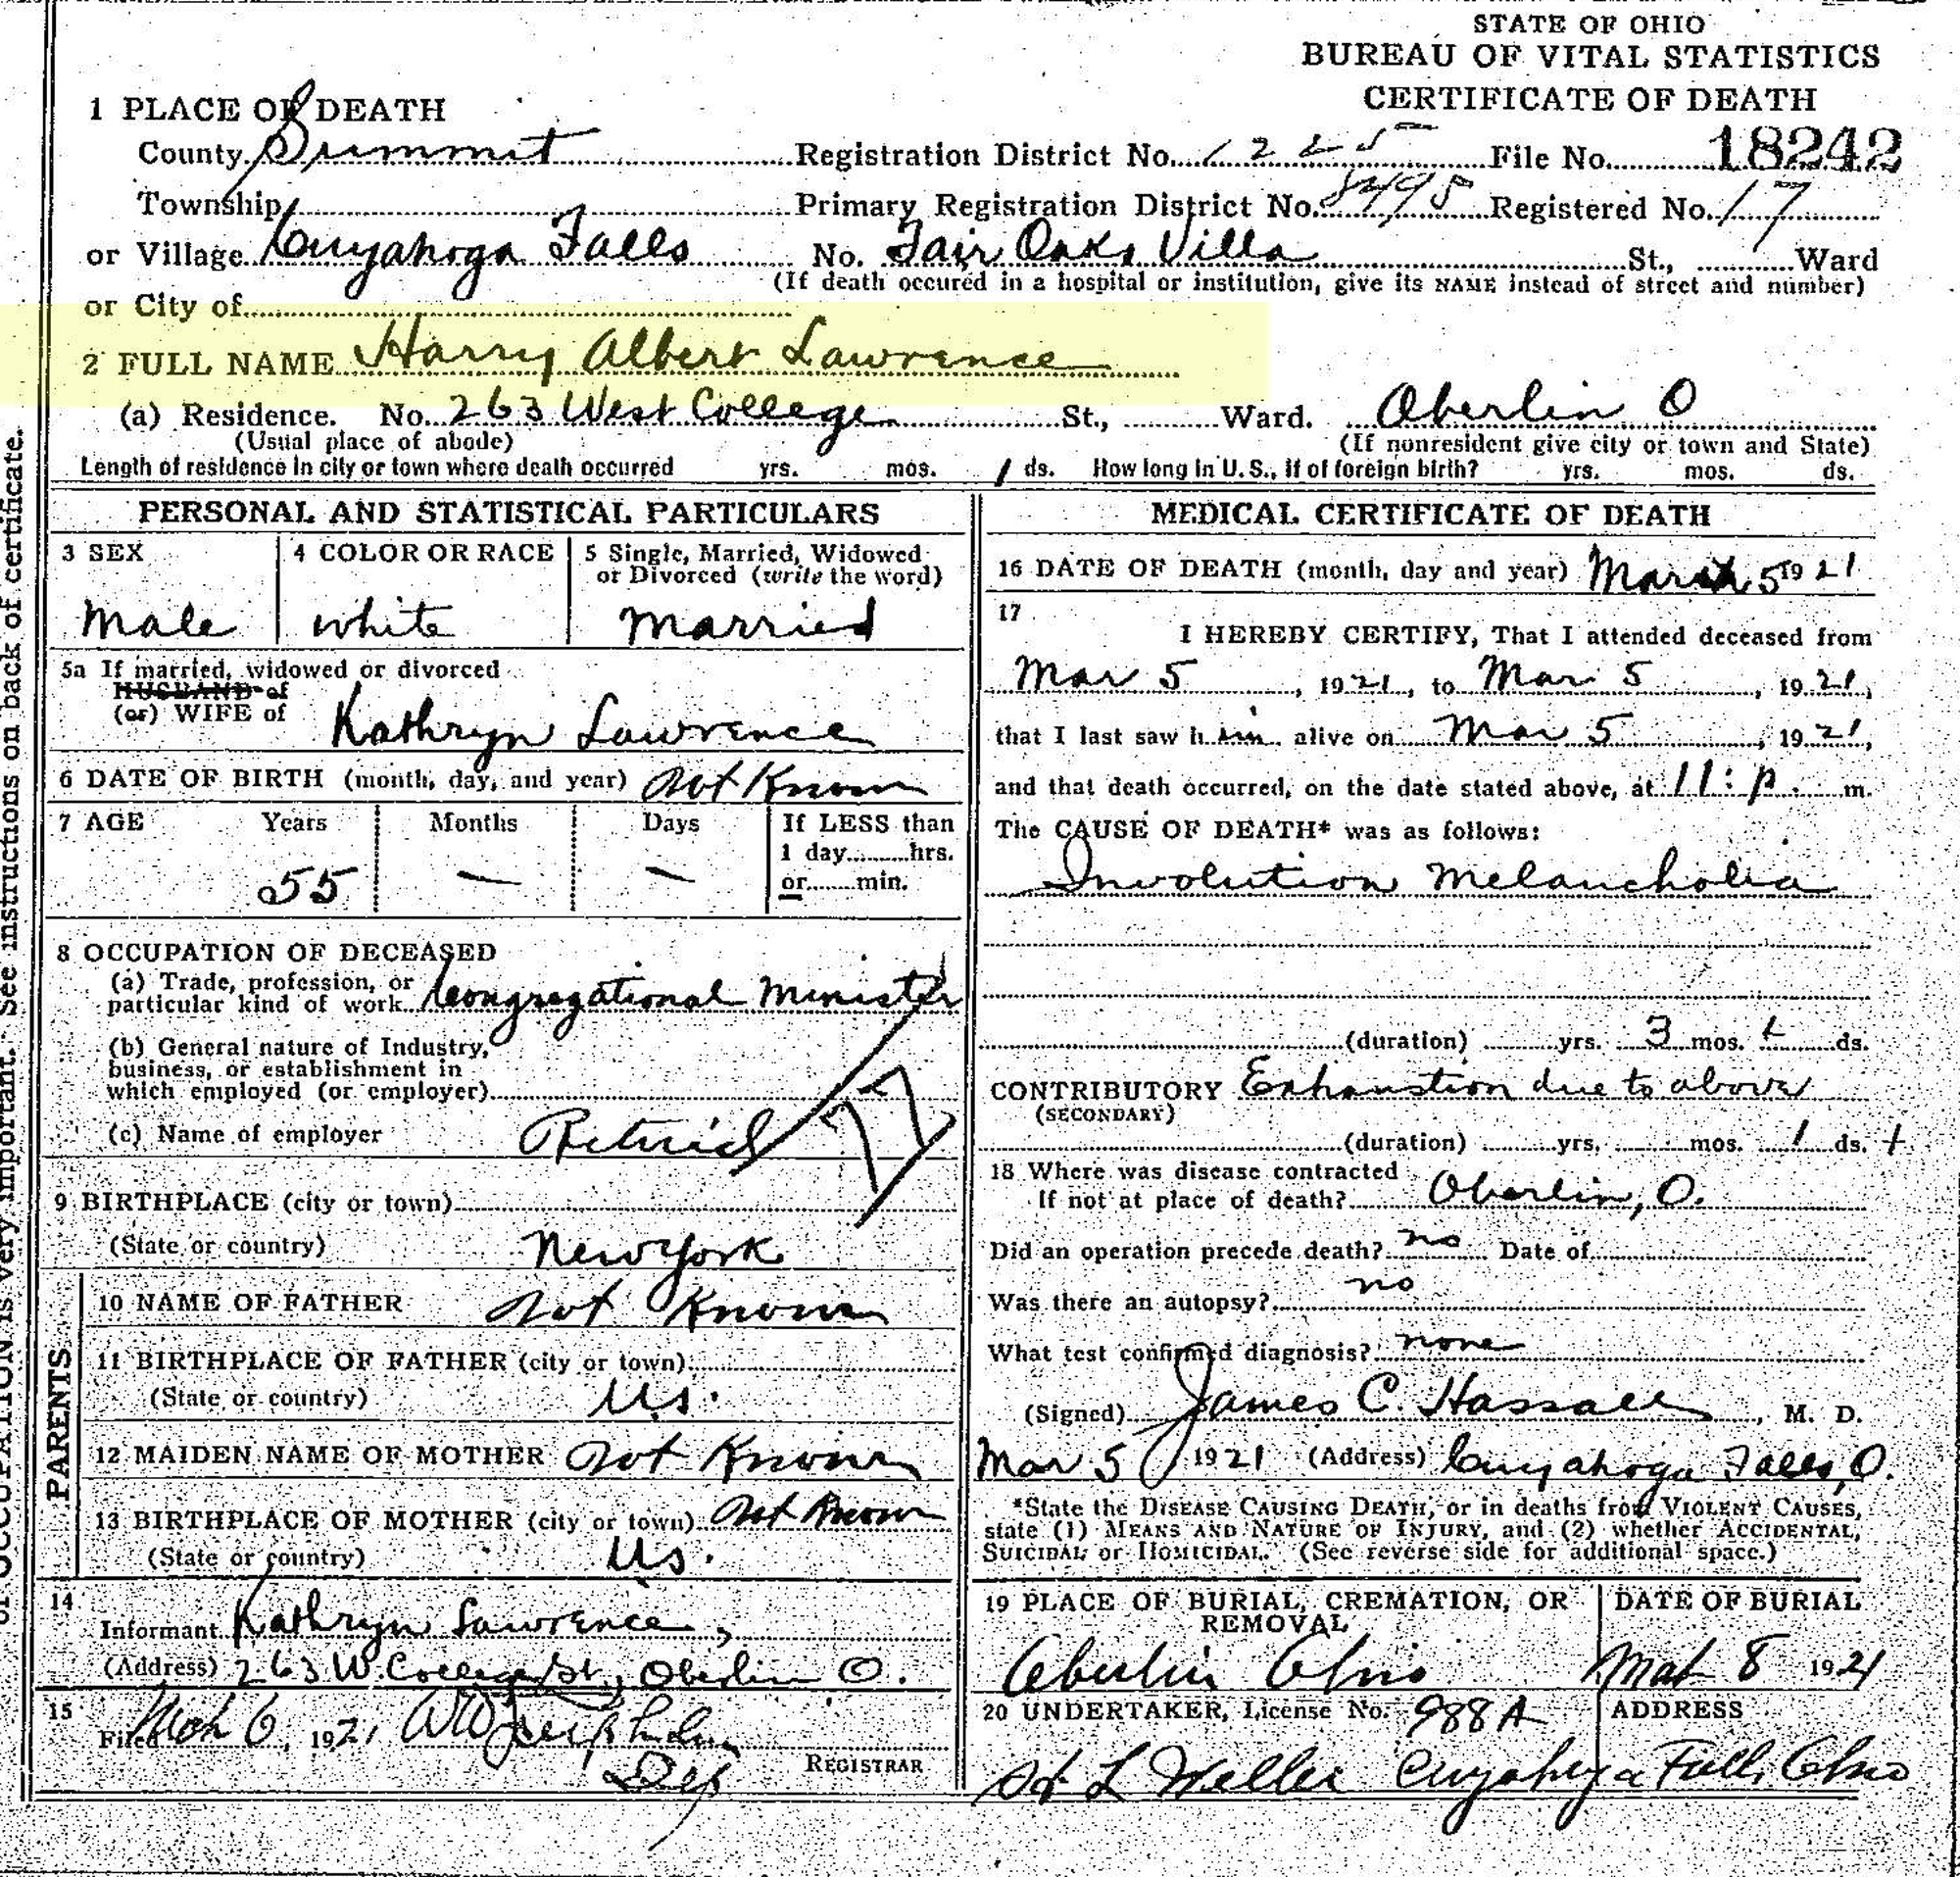 STATE OF OHIO
BUREAU OF VITAL STATISTICS
CERTIFICATE OF DEATH
1 PLACE OF DEATH
County Summit Registration District No. 1225 File No. 18242
Township Primary Registration District No. 8495 Registered No. 17
or Village Cuyahoga Falls No. Fair Oaks Villa St., Ward
(If death occured in a hospital or institution, give its NAME instead of street and number)
or City of
2 FULL NAME Harry Albert Lawrence
(a) Residence. No. 263 West College St., Ward. Oberlin O
(Usual place of abode) (If nonresident give city or town and State)
Length of residence in city or town where death occurred yrs. mos. 1 ds. How long in U. S., if of foreign birth? yrs. mos. ds.
PERSONAL AND STATISTICAL PARTICULARS
3 SEX
Male
4 COLOR OR RACE
white
5 Single, Married, Widowed
or Divorced (write the word)
Married
5a If married, widowed or divorced
HUSBAND of
(or) WIFE of
Kathryn Lawrence
6 DATE OF BIRTH (month, day, and year) Not Known
7 AGE Years Months Days If LESS than
1 day hrs.
55 — — or min.
8 OCCUPATION OF DECEASED
(a) Trade, profession, or
particular kind of work Congregational Minister
(b) General nature of Industry,
business, or establishment in
which employed (or employer)
(c) Name of employer Retired
9 BIRTHPLACE (city or town)
(State or country) New York
PARENTS
10 NAME OF FATHER Not Known
11 BIRTHPLACE OF FATHER (city or town)
(State or country) U.S.
12 MAIDEN NAME OF MOTHER Not Known
13 BIRTHPLACE OF MOTHER (city or town) Not Known
(State or country) U.S.
14
Informant Kathryn Lawrence,
(Address) 263 W. College St., Oberlin O.
15
Filed Mch 6, 1921
Dep REGISTRAR
MEDICAL CERTIFICATE OF DEATH
16 DATE OF DEATH (month, day and year) March 5 1921
17
I HEREBY CERTIFY, That I attended deceased from
Mar 5, 1921, to Mar 5, 1921,
that I last saw him alive on Mar 5, 1921,
and that death occurred, on the date stated above, at 11: p. m.
The CAUSE OF DEATH* was as follows:
Involution Melancholia
(duration) yrs. 3 mos. + ds.
CONTRIBUTORY Exhaustion due to above
(SECONDARY)
(duration) yrs. mos. 1 ds. +
18 Where was disease contracted
If not at place of death? Oberlin, O.
Did an operation precede death? no Date of
Was there an autopsy? no
What test confirmed diagnosis? none
(Signed) James C. Hassall, M. D.
Mar 5 1921 (Address) Cuyahoga Falls, O.
*State the DISEASE CAUSING DEATH, or in deaths from VIOLENT CAUSES,
state (1) MEANS AND NATURE OF INJURY, and (2) whether ACCIDENTAL,
SUICIDAL or HOMICIDAL. (See reverse side for additional space.)
19 PLACE OF BURIAL, CREMATION, OR
REMOVAL
Oberlin Ohio
DATE OF BURIAL
Mar 8 1921
20 UNDERTAKER, License No. 988A ADDRESS
L Weller Cuyahoga Falls Ohio
See instructions on back of certificate.
of OCCUPATION is very important.